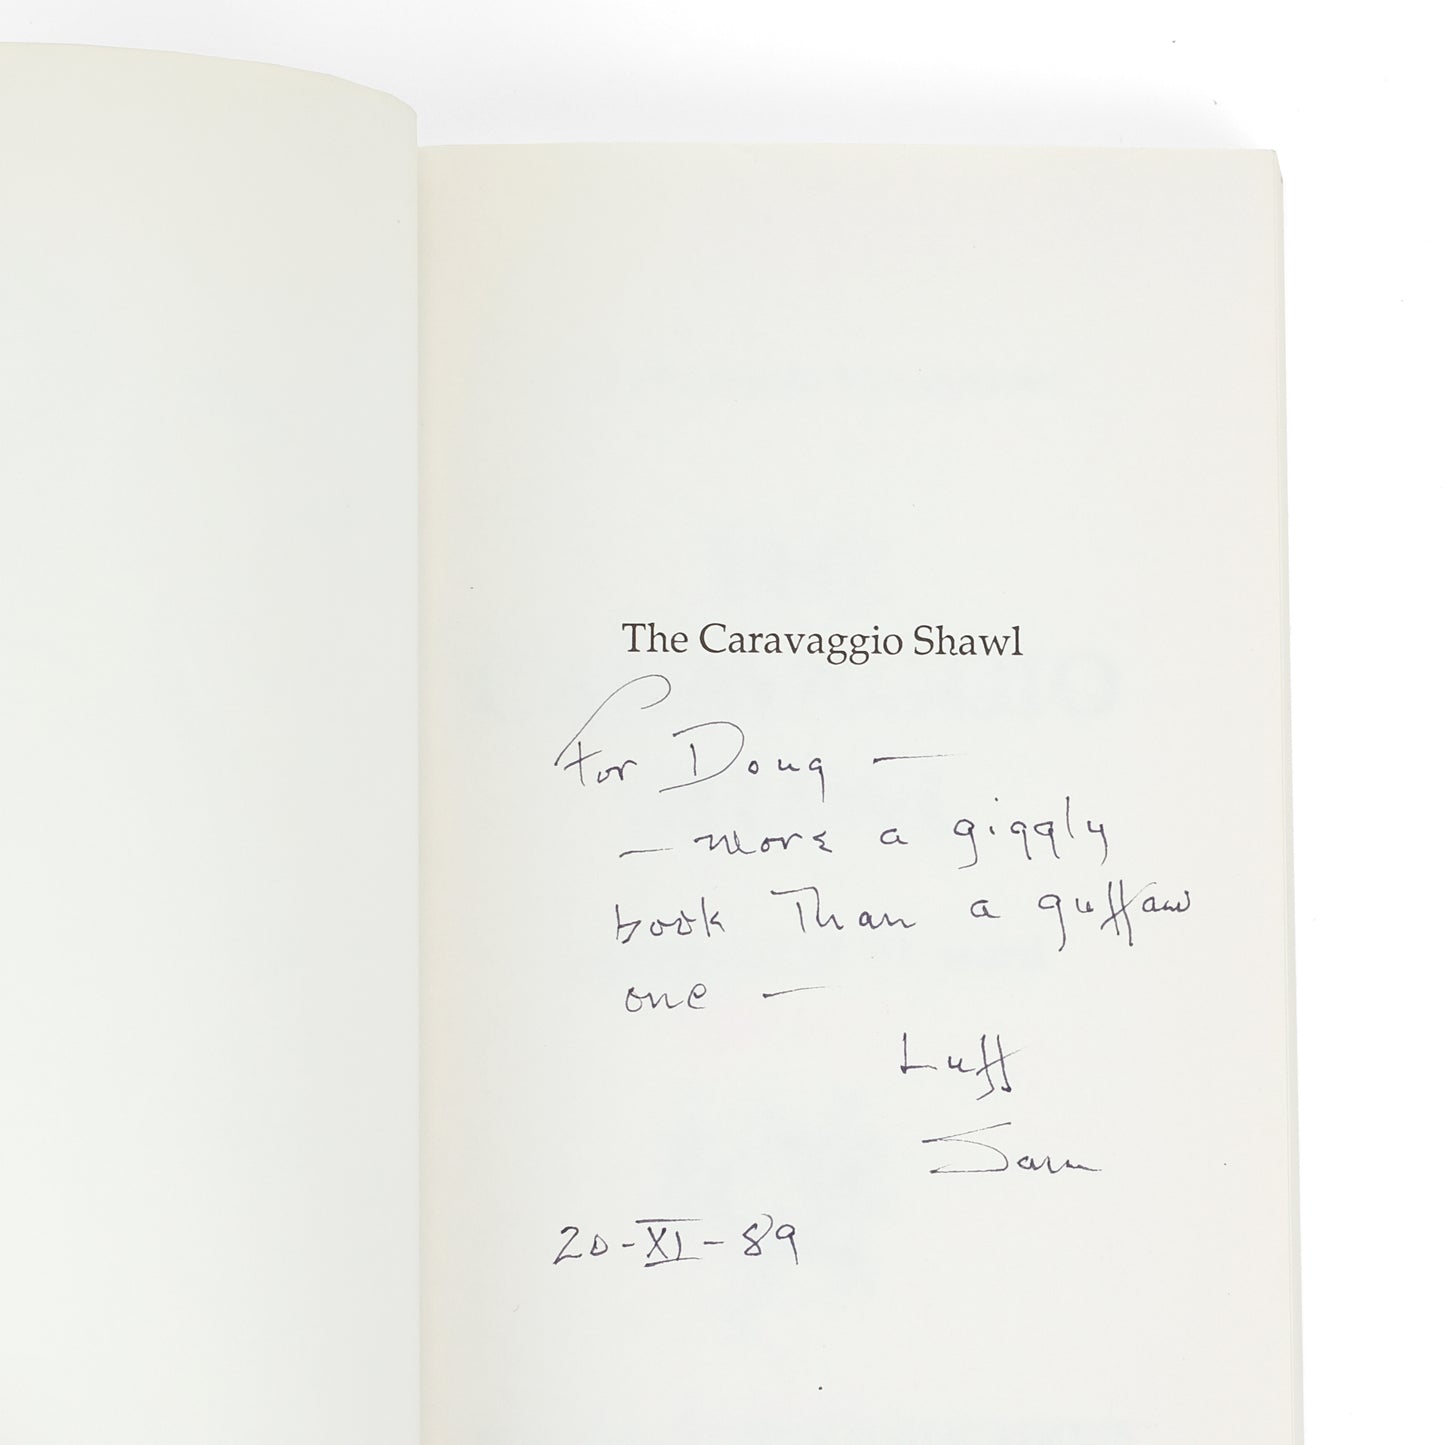 The Caravaggio Shawl
For Doug —
— more a giggly
book Than a guffaw
one —
Luff
Sam
20-XI-89